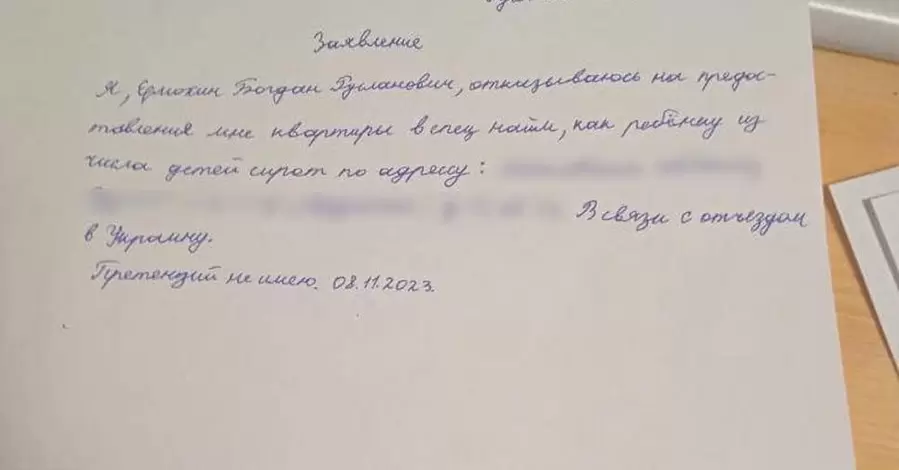 Заявление
Я, Ермохин Богдан Русланович, отказываюсь на предос-
тавления мне квартиры в спец найм, как ребёнку из
числа детей сирот по адрессу:
В связи с отъездом
в Украину.
Претензий не имею. 08.11.2023.